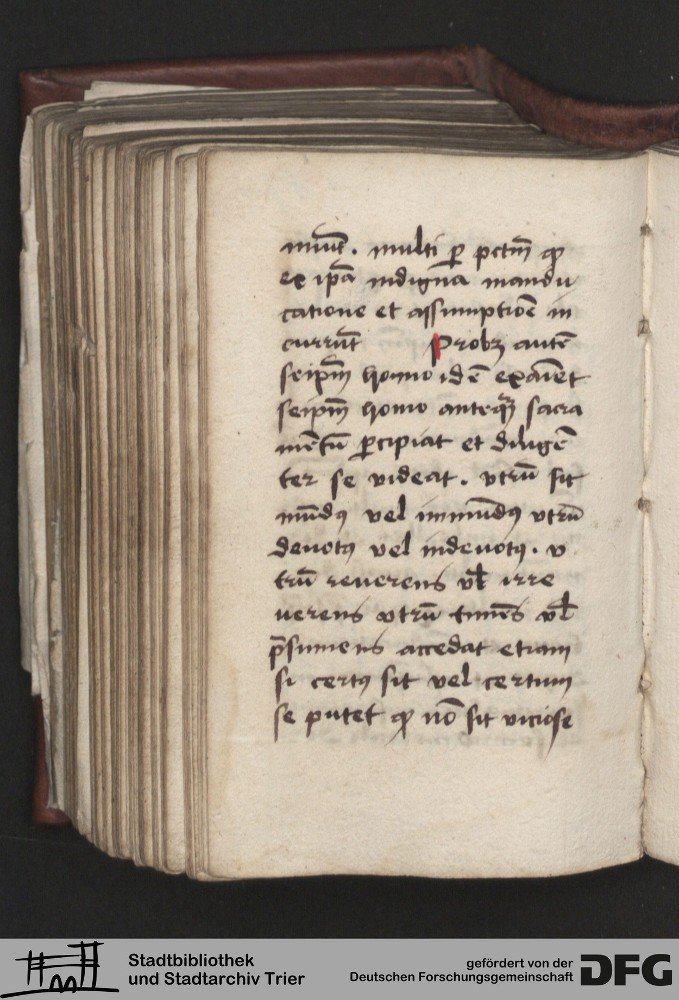 miūt. multi ꝑ pctm̄ qꝫ
ex ip̄a indigna mandu
catione et assumptiōe in
currūt Probꝫ autē
seip̄m homo id ē exaīet
seip̄m homo anteqꝫ̄ sacra
mētū ꝑcipiat et diligē
ter se videat. vtrū sit
mūdꝯ vel immūdꝯ vtrū
deuotꝯ vel indeuotꝯ. v
trū reuerens vl̄ irre
uerens vtrū timēs vl̄
p̄sumens accedat etiam
si certꝯ sit vel certum
se putet qꝫ nō sit viciose
Stadtbibliothek
und Stadtarchiv Trier
gefördert von der
Deutschen Forschungsgemeinschaft
DFG